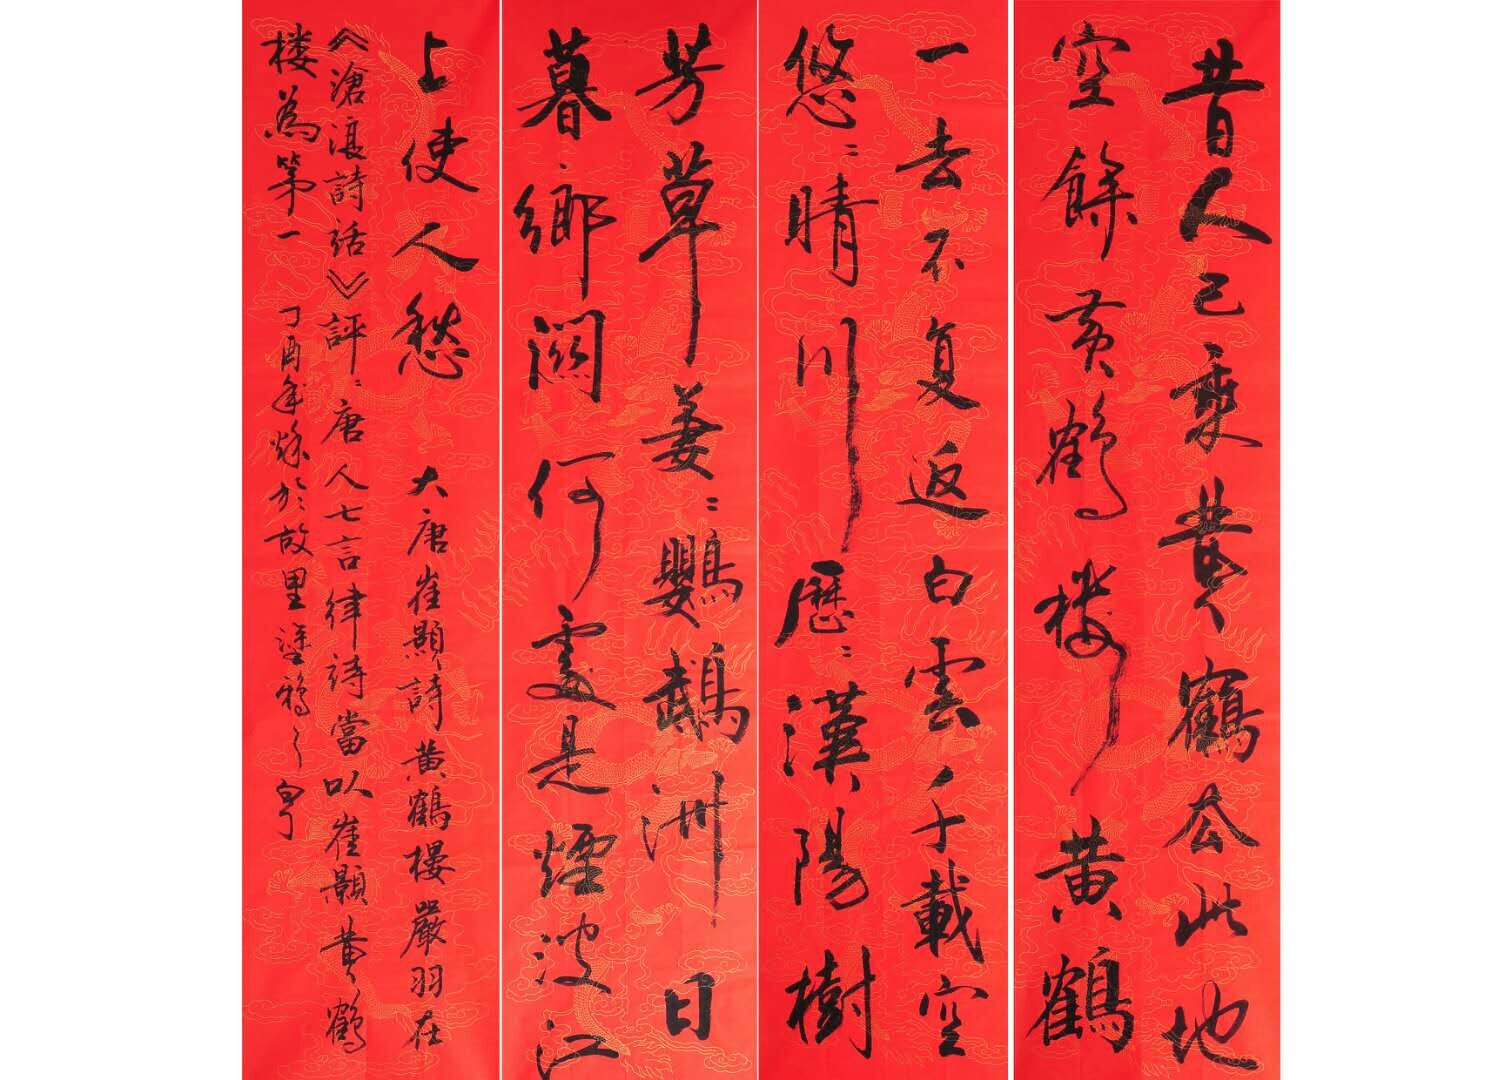 昔人已乘黄鶴去此地
空餘黄鶴樓黄鶴
一去不复返白雲千載空
悠〻晴川歷〻漢陽樹
芳草萋〻鸚鵡洲日
暮鄉關何處是煙波江
上使人愁
大唐崔顥詩黄鶴樓嚴羽在
《滄浪詩話》評〻唐人七言律詩當以崔顥黄鶴
楼為第一
丁酉年 於故里塗鴉